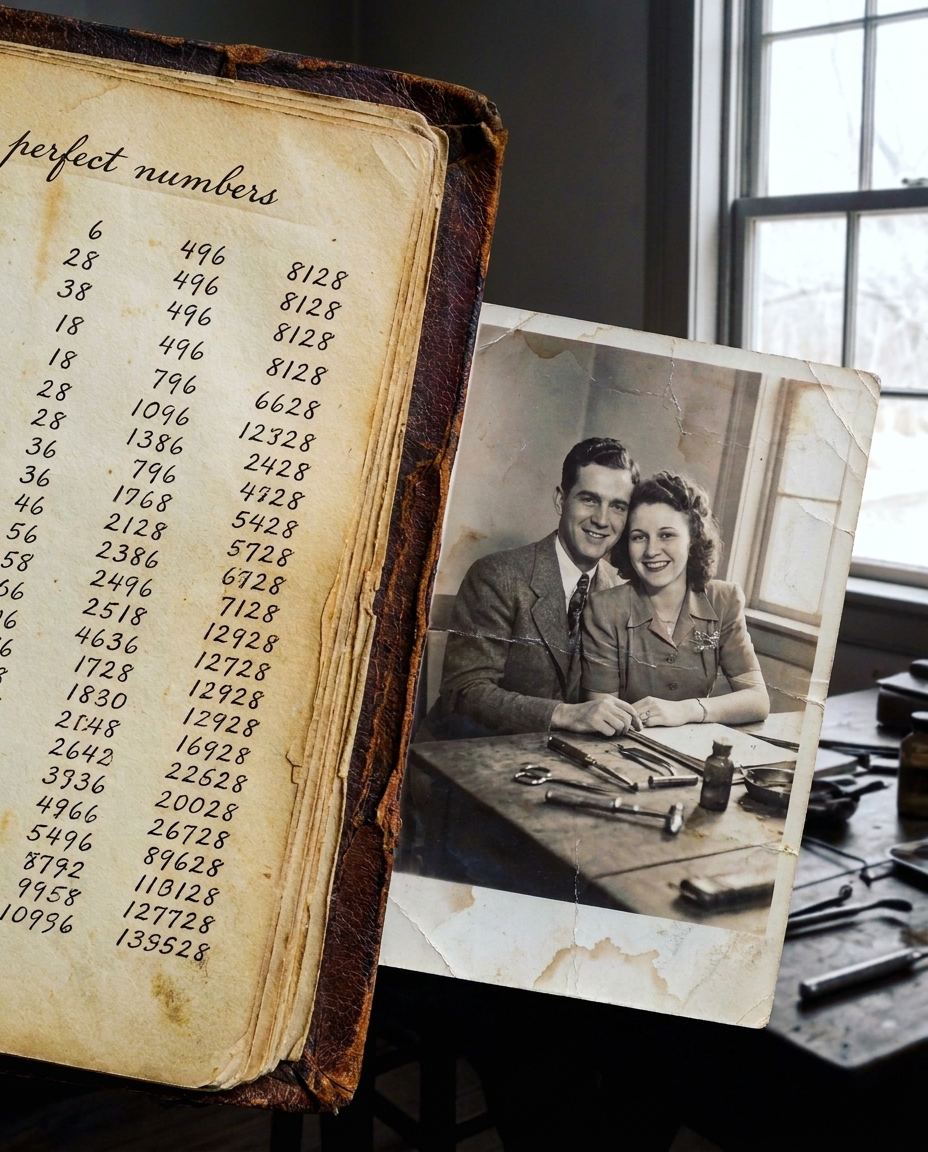 perfect numbers
6 496 8128
28 496 8128
38 496 8128
18 496 8128
18 796 6628
28 1096 12328
28 1386 2428
36 796 4728
36 1768 5428
46 2128 5728
56 2386 6728
58 2496 7128
66 2518 12928
4636 12728
1728 12928
1830 12928
16928
2642 22628
3936 20028
4966 26728
5496 89628
8792
9958 127728
10996 139528